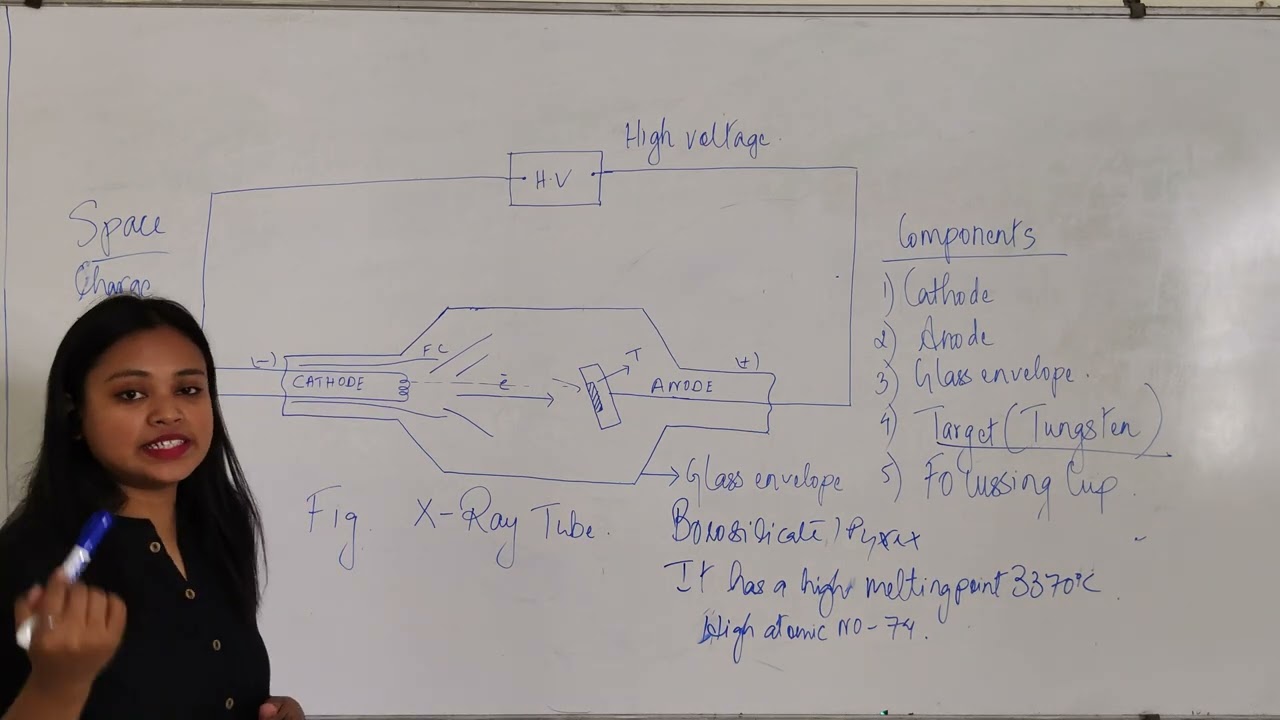 High voltage.
H.V
Space
Charge
Components
1) Cathode
2) Anode
3) Glass envelope.
4) Target (Tungsten)
5) Focussing Cup.
(-)
F.C
CATHODE
e-
T
ANODE
(+)
Glass envelope
Fig. X-Ray Tube.
Borosilicate / Pyrex
It has a high melting point 3370°C
High atomic NO - 74.